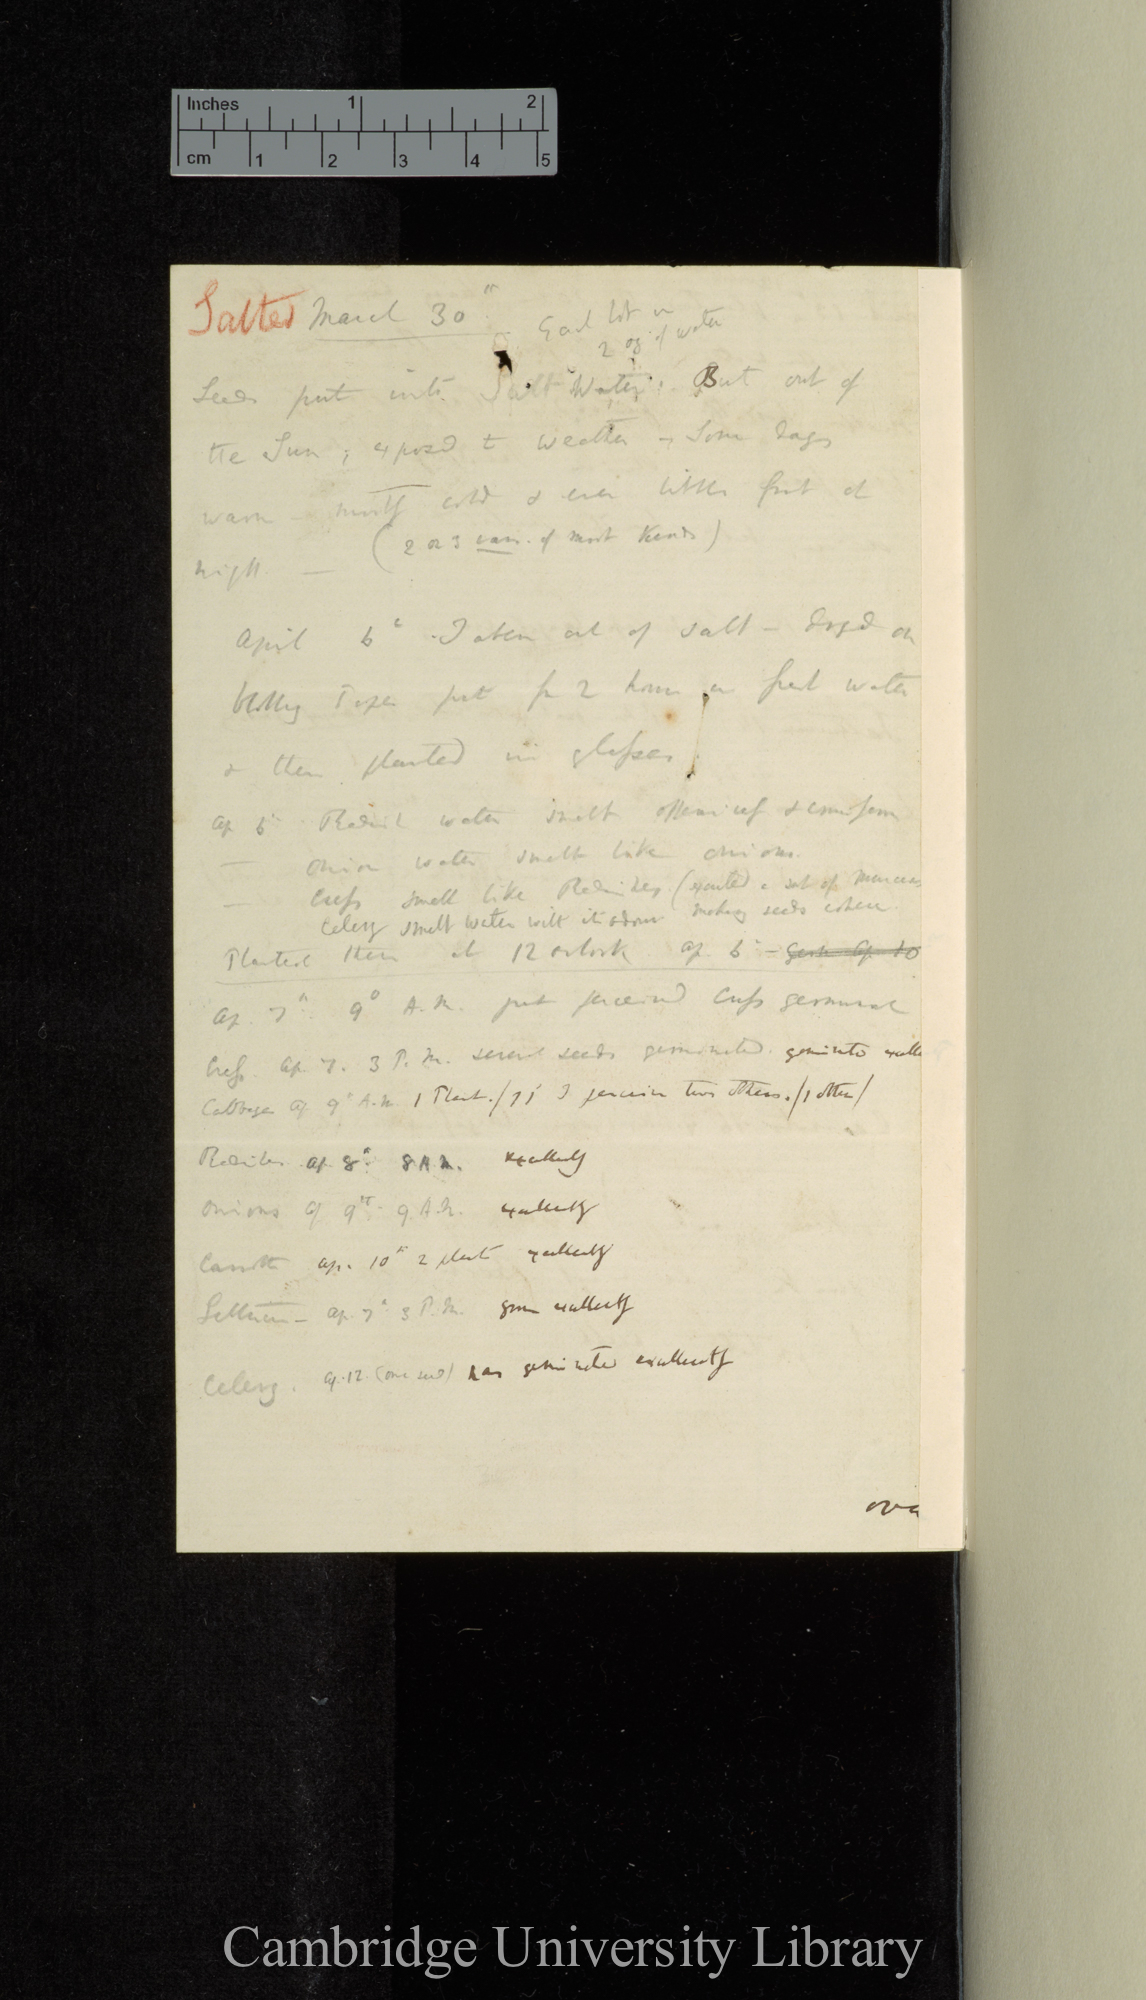 Inches 1 2
cm 1 2 3 4 5
Salted March 30th
Each lot in
2 oz of water
Seeds put into Salt Water. But out of
the Sun; exposed to weather — Some days
warm — mostly cold & even little frost at
night. — (2 or 3 vars. of most kinds)
April 6th Taken out of salt — dryed on
blotting Paper put for 2 hours in fresh water
& then planted in glasses
Ap 6th Radish water smelt offensively &
— Onion water smelt like onions.
— Cress smelt like Radishes (exuded a sort of mucus
Celery smelt water with its odour making seeds cohere
Planted them at 12 oclock Ap 6th — germ Ap 10
Ap. 7th 9o A.M. just perceived Cress germinat
Cress Ap. 7. 3 P.M. several seeds germinated. germinated excelle
Cabbages Ap 9th A.M. 1 Plant. / I perceive two others. / 1 other /
Radishes Ap 8th 8 A.M. excellently
Onions Ap 9th 9 A.M. excellently
Carrots Ap. 10th 2 plants excellently
Lettuce — Ap. 7th 3 P.M. grown excellently
Celery. Ap. 12. (one seed) has germinated excellently
over
Cambridge University Library